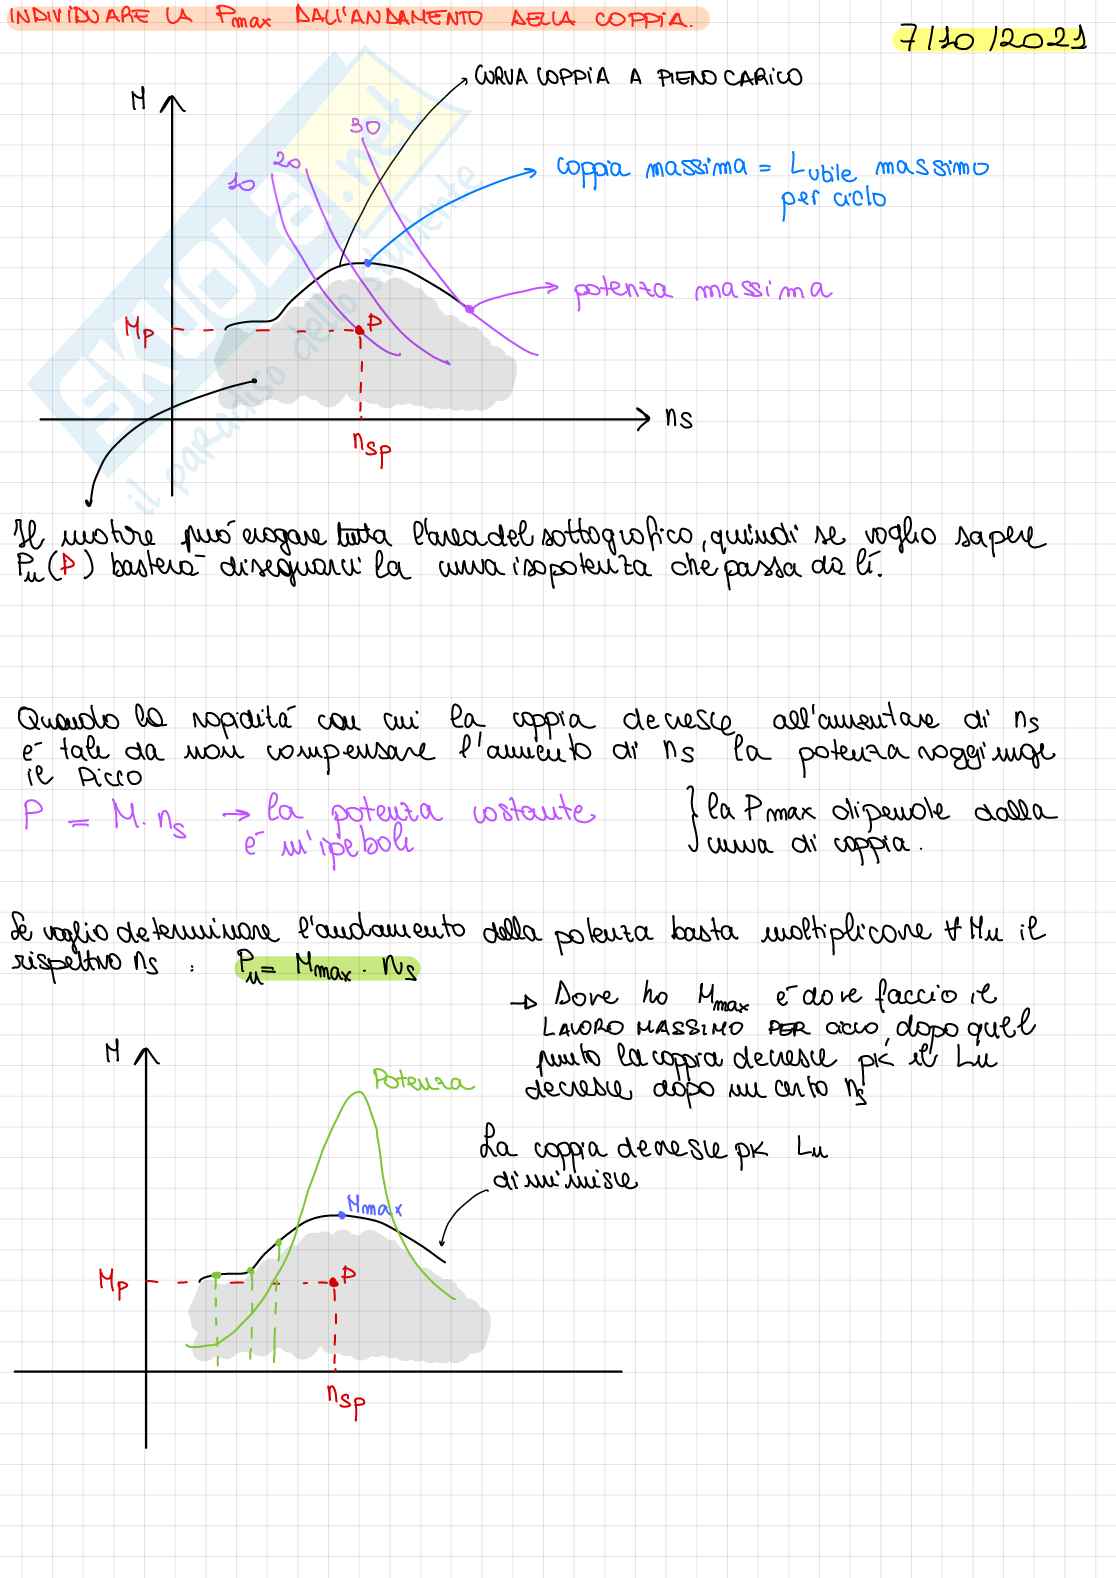 INDIVIDUARE LA Pmax DALL'ANDAMENTO DELLA COPPIA.
7/10/2021
CURVA COPPIA A PIENO CARICO
M
30
20
10
coppia massima = Lutile massimo
per ciclo
potenza massima
Mp
P
ns
nsp
SKUOLA.net
il paradiso dello studente
Il motore può erogare tutta l'area del sottografico, quindi se voglio sapere
Pu(P) basterà disegnarci la curva isopotenza che passa da lì.
Quando la rapidità con cui la coppia decresce all'aumentare di ns
è tale da non compensare l'aumento di ns la potenza raggiunge
il picco
P = M. ns → la potenza costante
è un'iperbole
la Pmax dipende dalla
curva di coppia.
Se voglio determinare l'andamento della potenza basta moltiplicare ∀ Mu il
rispettivo ns : Pu= Mmax . ns
→ Dove ho Mmax è dove faccio il
LAVORO MASSIMO PER ciclo, dopo quel
punto la coppia decresce pk il Lu
decresce dopo un certo ns
M
Potenza
La coppia decresce pk Lu
diminuisce
Mmax
Mp
P
nsp